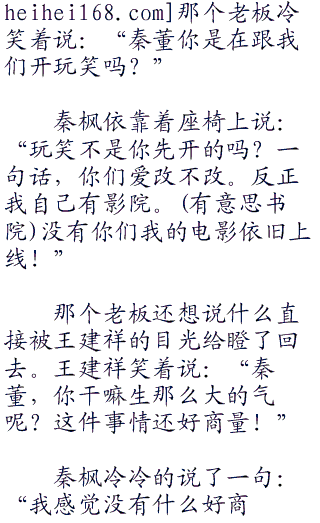 heihei168.com]那个老板冷
笑着说：“秦董你是在跟我
们开玩笑吗？”
秦枫依靠着座椅上说：
“玩笑不是你先开的吗？一
句话，你们爱改不改。反正
我自己有影院。(有意思书
院)没有你们我的电影依旧上
线！”
那个老板还想说什么直
接被王建祥的目光给瞪了回
去。王建祥笑着说：“秦
董，你干嘛生那么大的气
呢？这件事情还好商量！”
秦枫冷冷的说了一句：
“我感觉没有什么好商